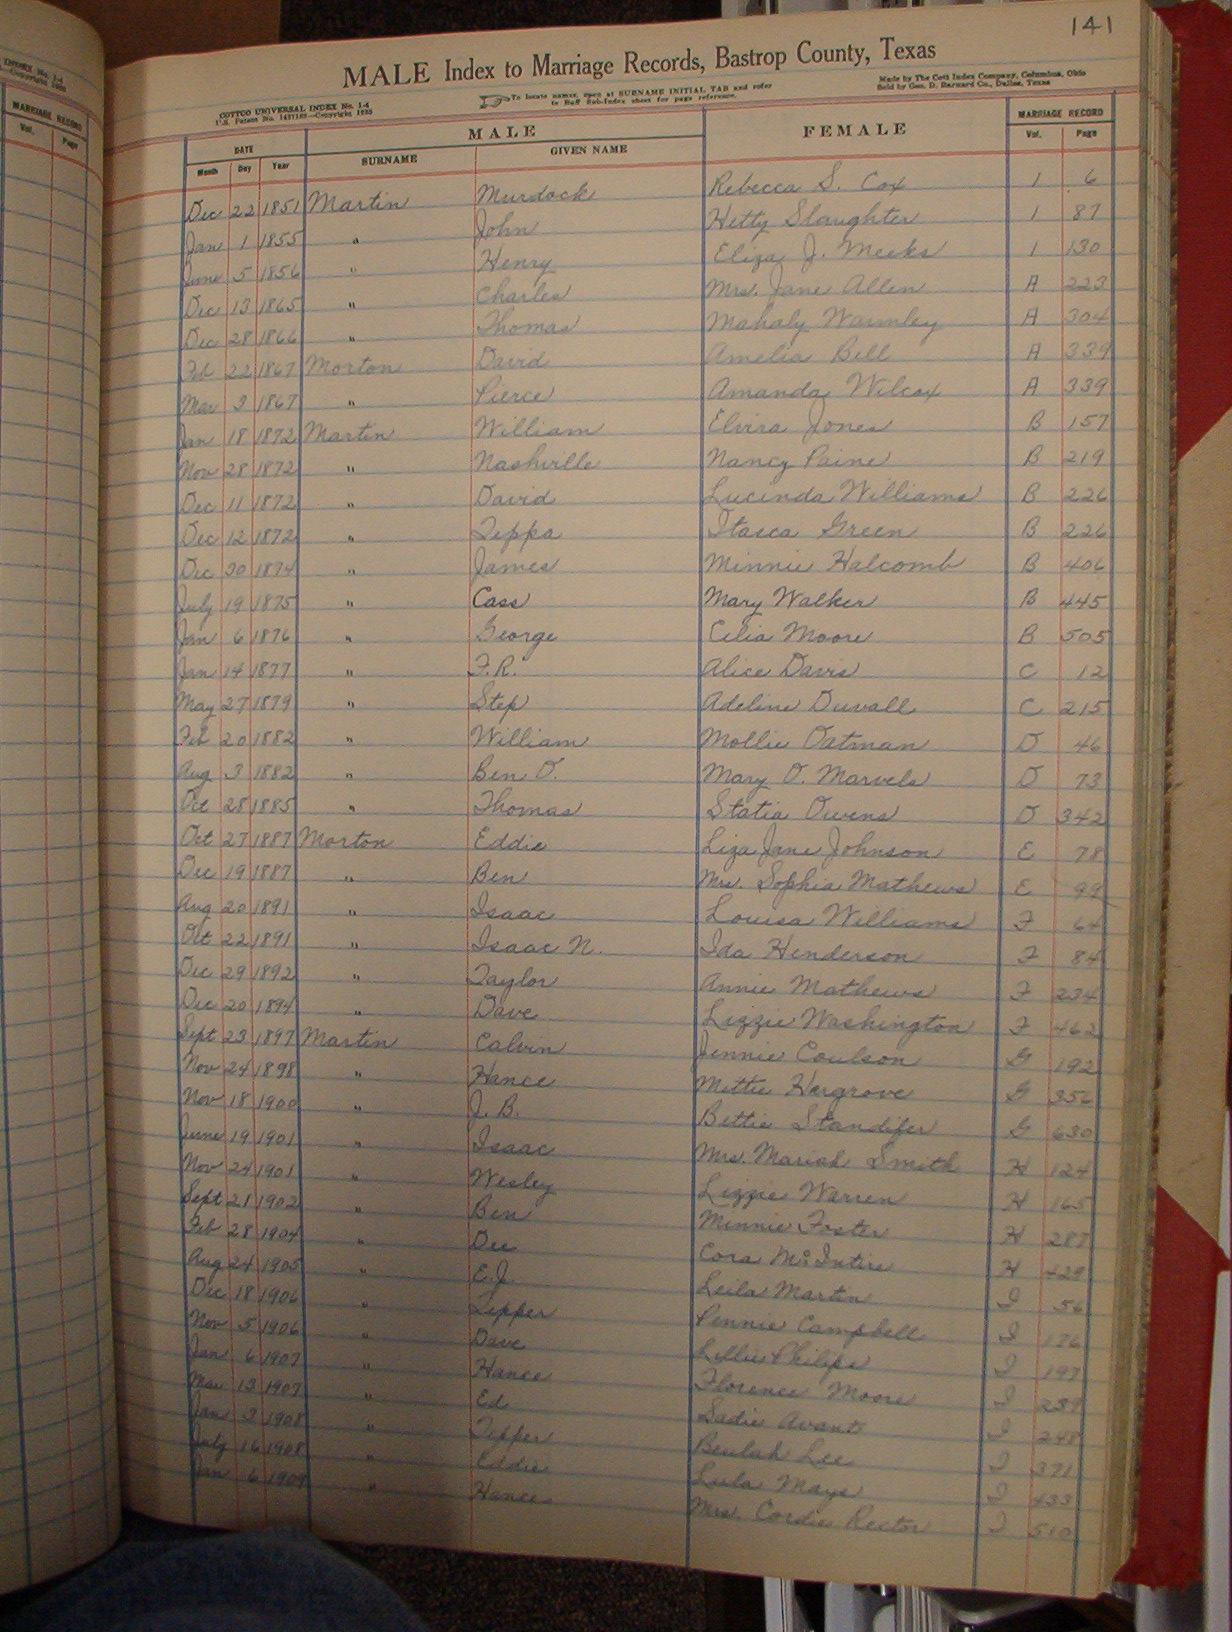 141
MALE Index to Marriage Records, Bastrop County, Texas
COTTCO UNIVERSAL INDEX No. 1-4
To locate names, open at SURNAME INITIAL TAB and refer
to Buff Sub-Index sheet for page reference.
Made by The Cott Index Company, Columbus, Ohio
Sold by Geo. D. Barnard Co., Dallas, Texas
MARRIAGE RECORD
Vol. Page
DATE MALE FEMALE MARRIAGE RECORD
Month Day Year SURNAME GIVEN NAME Vol. Page
Dec 22 1851 Martin Murdock Rebecca S. Cox 1 6
Jan 1 1855 " John Hetty Slaughter 1 87
June 5 1856 " Henry Eliza J. Meeks 1 130
Dec 13 1865 " Charles Mrs. Jane Allen A 223
Dec 28 1866 " Thomas Mahaly Warmley A 304
Feb 22 1867 Morton David Amelia Bell A 339
Mar 3 1867 " Pierce Amanda Wilcox A 339
Jan 18 1872 Martin William Elvira Jones B 157
Nov 28 1872 " Nashville Nancy Paine B 219
Dec 11 1872 " David Lucinda Williams B 226
Dec 12 1872 " Teppa Itasca Green B 226
Dec 30 1874 " James Minnie Halcomb B 406
July 19 1875 " Cass Mary Walker B 445
Jan 6 1876 " George Celia Moore B 505
Jan 14 1877 " F.R. Alice Davis C 12
May 27 1879 " Step Adeline Duvall C 215
Feb 20 1882 " William Mollie Oatman D 46
Aug 3 1882 " Ben O. Mary O. Marvels D 73
Oct 28 1885 " Thomas Statia Owens D 342
Oct 27 1887 Morton Eddie Liza Jane Johnson E 78
Dec 19 1887 " Ben Mrs. Sophia Mathews E 99
Aug 20 1891 " Isaac Louisa Williams F 64
Oct 22 1891 " Isaac N. Ida Henderson F 84
Dec 29 1892 " Taylor Annie Mathews F 234
Dec 20 1894 " Dave Lizzie Washington F 462
Sept 23 1897 Martin Calvin Jennie Coulson G 192
Nov 24 1898 " Hance Mettie Hargrove G 356
Nov 18 1900 " J. B. Bettie Standifer G 630
June 19 1901 " Isaac Mrs. Mariah Smith H 124
Nov 24 1901 " Wesley Lizzie Warren H 165
Sept 21 1902 " Ben Minnie Foster H 287
Feb 28 1904 " Dee Cora McIntire H 429
Aug 24 1905 " E.J. Leila Martin I 56
Dec 18 1906 " Tepper Pennie Campbell I 176
Nov 5 1906 " Dave Lillie Philips I 197
Jan 6 1907 " Hance Florence Moore I 239
Mar 13 1907 " Ed Sadie Avant I 248
Jan 3 1908 " Tepper Beulah Lee I 371
July 16 1908 " Eddie Lula Mays I 433
Jan 6 1909 " Hance Mrs. Cordie Rector I 510